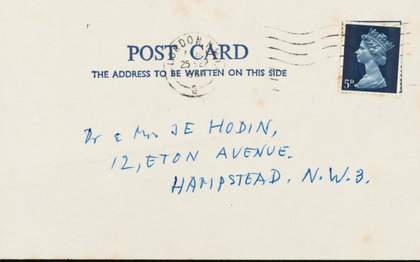 POST CARD
THE ADDRESS TO BE WRITTEN ON THIS SIDE
LONDON
25 SEP
5D
Dr & Mrs JE HODIN,
12, ETON AVENUE.
HAMPSTEAD. N.W.3.